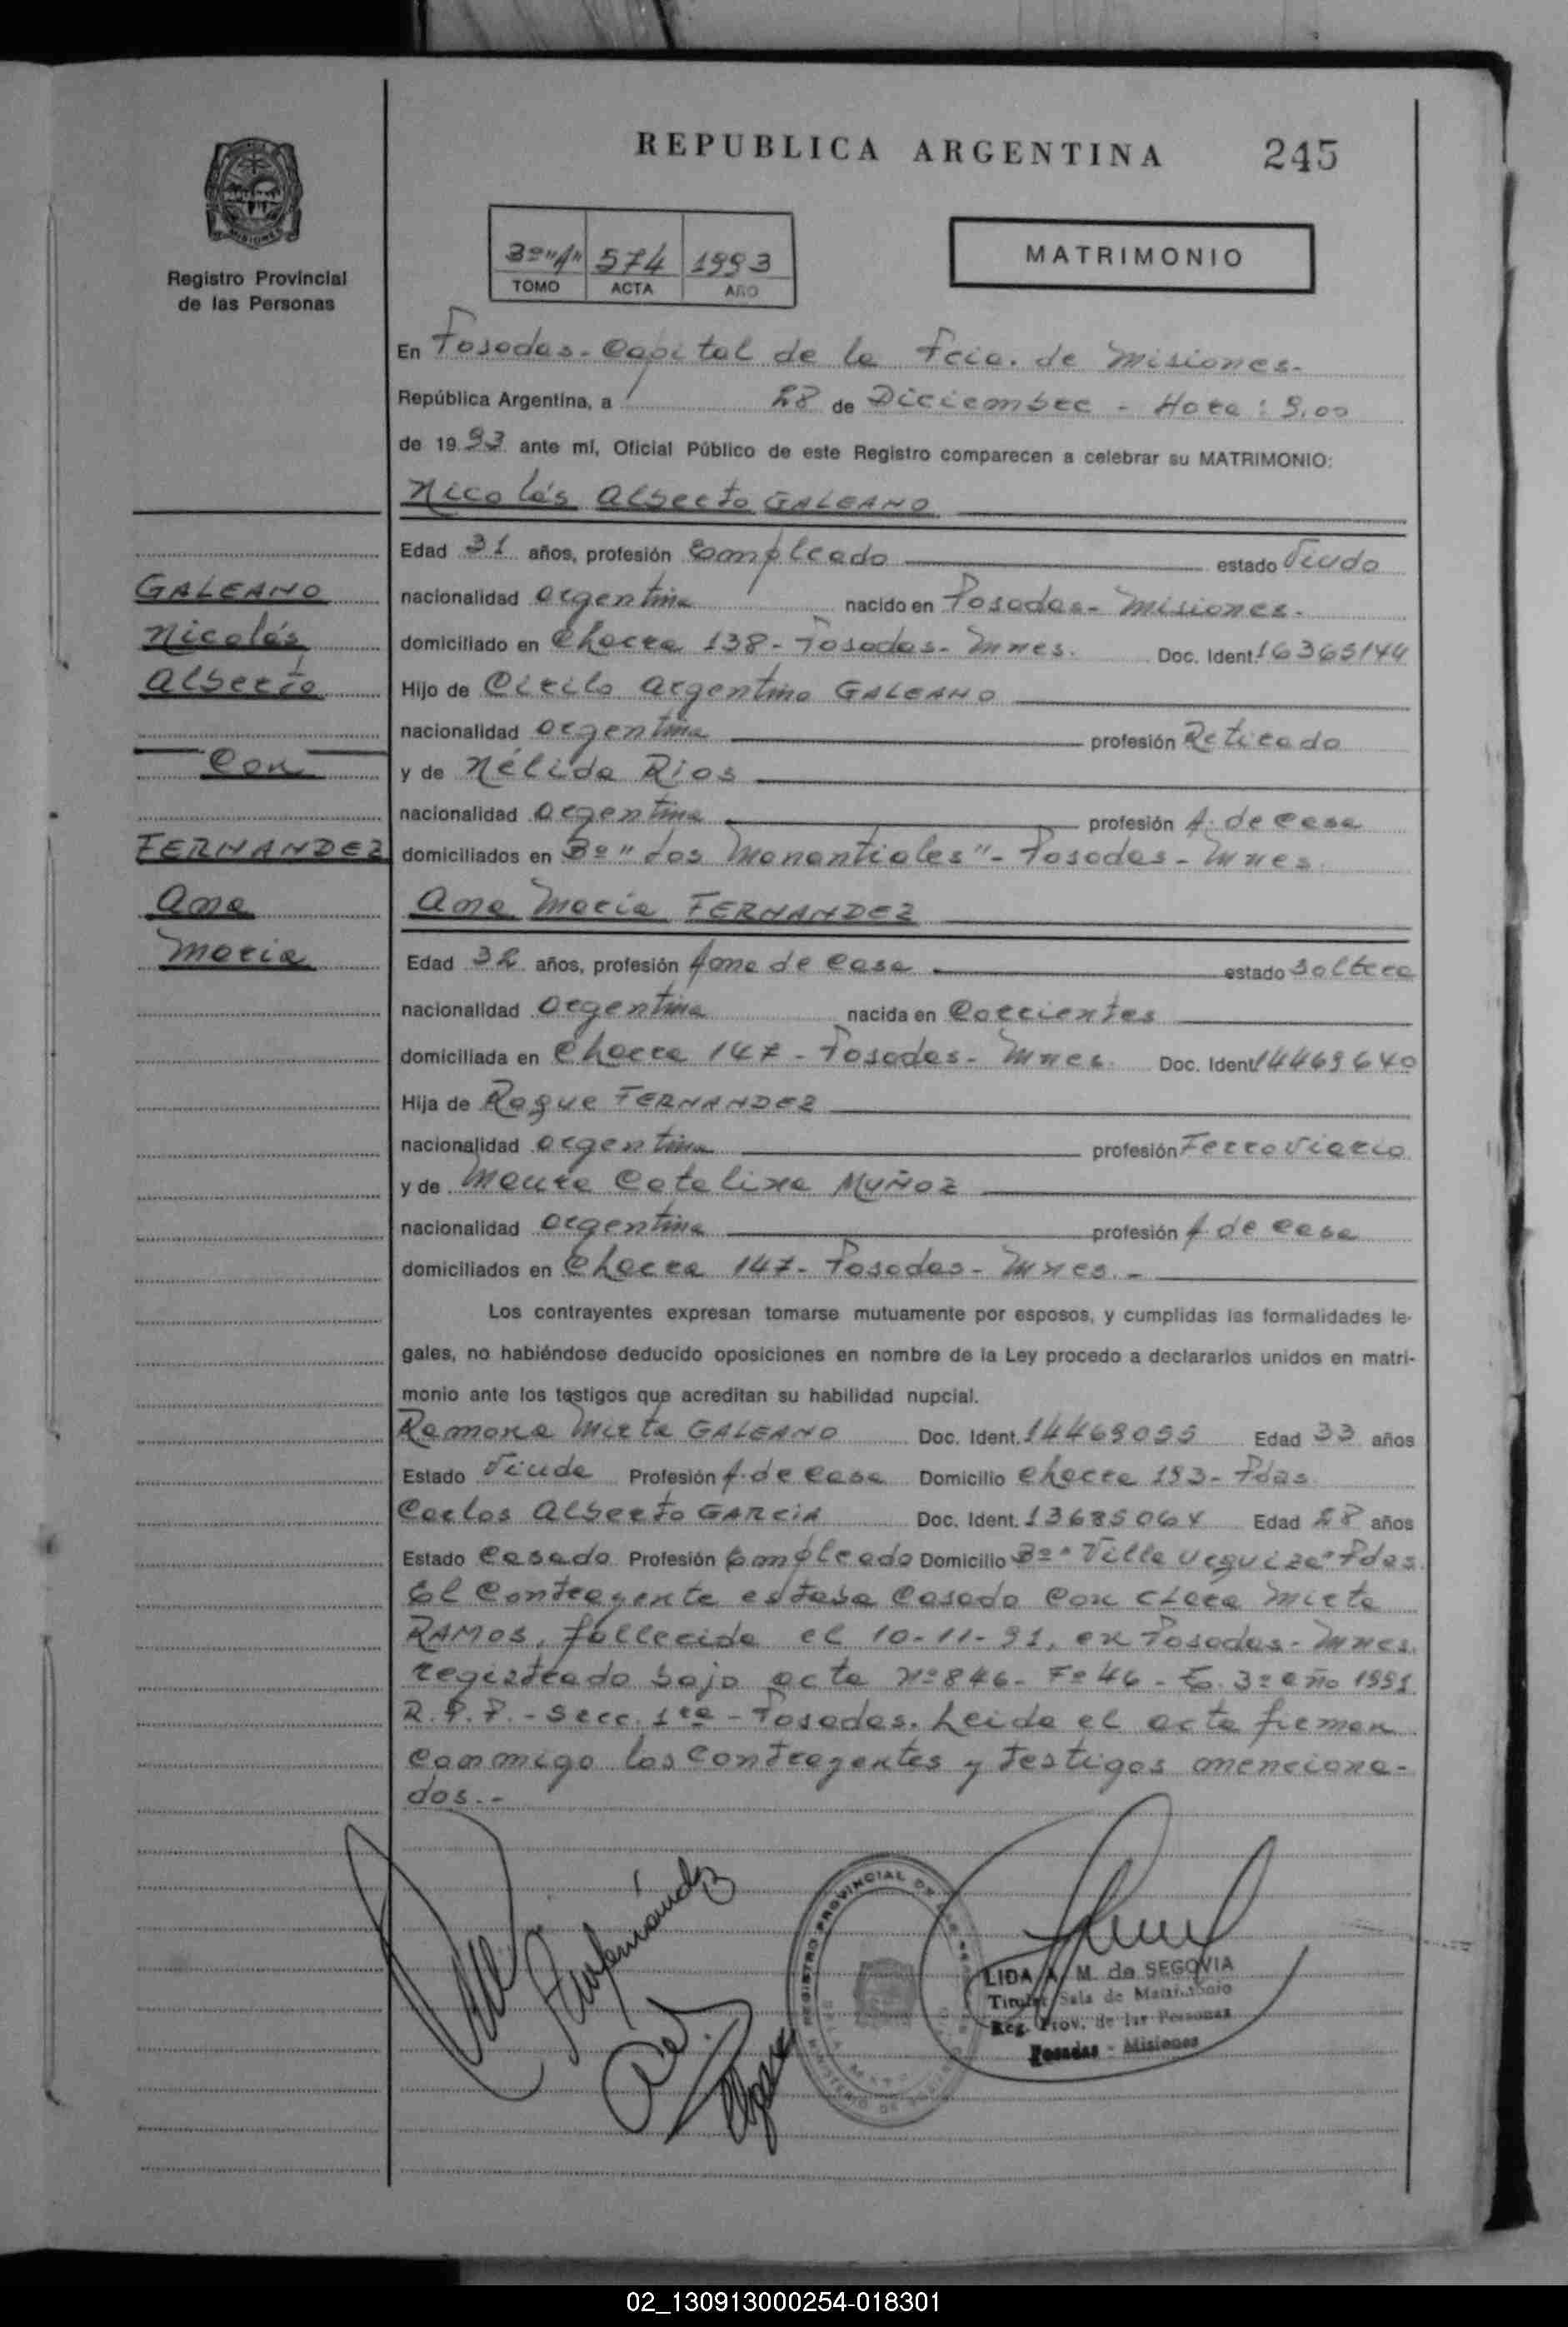 REPUBLICA ARGENTINA 245
MISIONES
Registro Provincial
de las Personas
3º "A" 574 1993
TOMO ACTA AÑO
MATRIMONIO
En Posadas - Capital de la Pcia. de Misiones -
República Argentina, a 28 de Diciembre - Hora: 9,00
de 1993 ante mí, Oficial Público de este Registro comparecen a celebrar su MATRIMONIO:
Nicolás Alberto GALEANO
Edad 31 años, profesión Empleado estado Viudo
GALEANO
Nicolás
Alberto
con
FERNANDEZ
Ana
María
nacionalidad argentina nacido en Posadas - Misiones -
domiciliado en Chacra 138 - Posadas - Mnes. Doc. Ident. 16365144
Hijo de Cirilo Argentino GALEANO
nacionalidad argentina profesión Retirado
y de Nélida Rios
nacionalidad argentina profesión A. de casa
domiciliados en Bº "Los Manantiales" - Posadas - Mnes.
Ana María FERNANDEZ
Edad 32 años, profesión Ama de casa estado soltera
nacionalidad argentina nacida en Corrientes
domiciliada en Chacra 147 - Posadas - Mnes. Doc. Ident. 14469640
Hija de Roque FERNANDEZ
nacionalidad argentina profesión Ferroviario
y de Maura Catalina MUÑOZ
nacionalidad argentina profesión A. de casa
domiciliados en Chacra 147 - Posadas - Mnes. -
Los contrayentes expresan tomarse mutuamente por esposos, y cumplidas las formalidades le-
gales, no habiéndose deducido oposiciones en nombre de la Ley procedo a declararlos unidos en matri-
monio ante los testigos que acreditan su habilidad nupcial.
Ramona Mirta GALEANO Doc. Ident. 14469055 Edad 33 años
Estado Viuda Profesión A. de casa Domicilio Chacra 193 - Pdas
Carlos Alberto GARCIA Doc. Ident. 13685064 Edad 28 años
Estado Casado Profesión Empleado Domicilio Bº "Villa Urquiza" Pdas.
El contrayente estaba casado con Clara Mirta
RAMOS, fallecida el 10-11-91, en Posadas - Mnes.
registrado bajo acta Nº 846 - Fº 46 - T. 3º año 1991.
R.P.P. - Secc. 1ra - Posadas. Leida el acta firman
conmigo los contrayentes y testigos menciona-
dos. -
REGISTRO PROVINCIAL DE LAS PERSONAS
LIDA A. M. de SEGOVIA
Titular Sala de Matrimonio
Reg. Prov. de las Personas
Posadas - Misiones
02_130913000254-018301